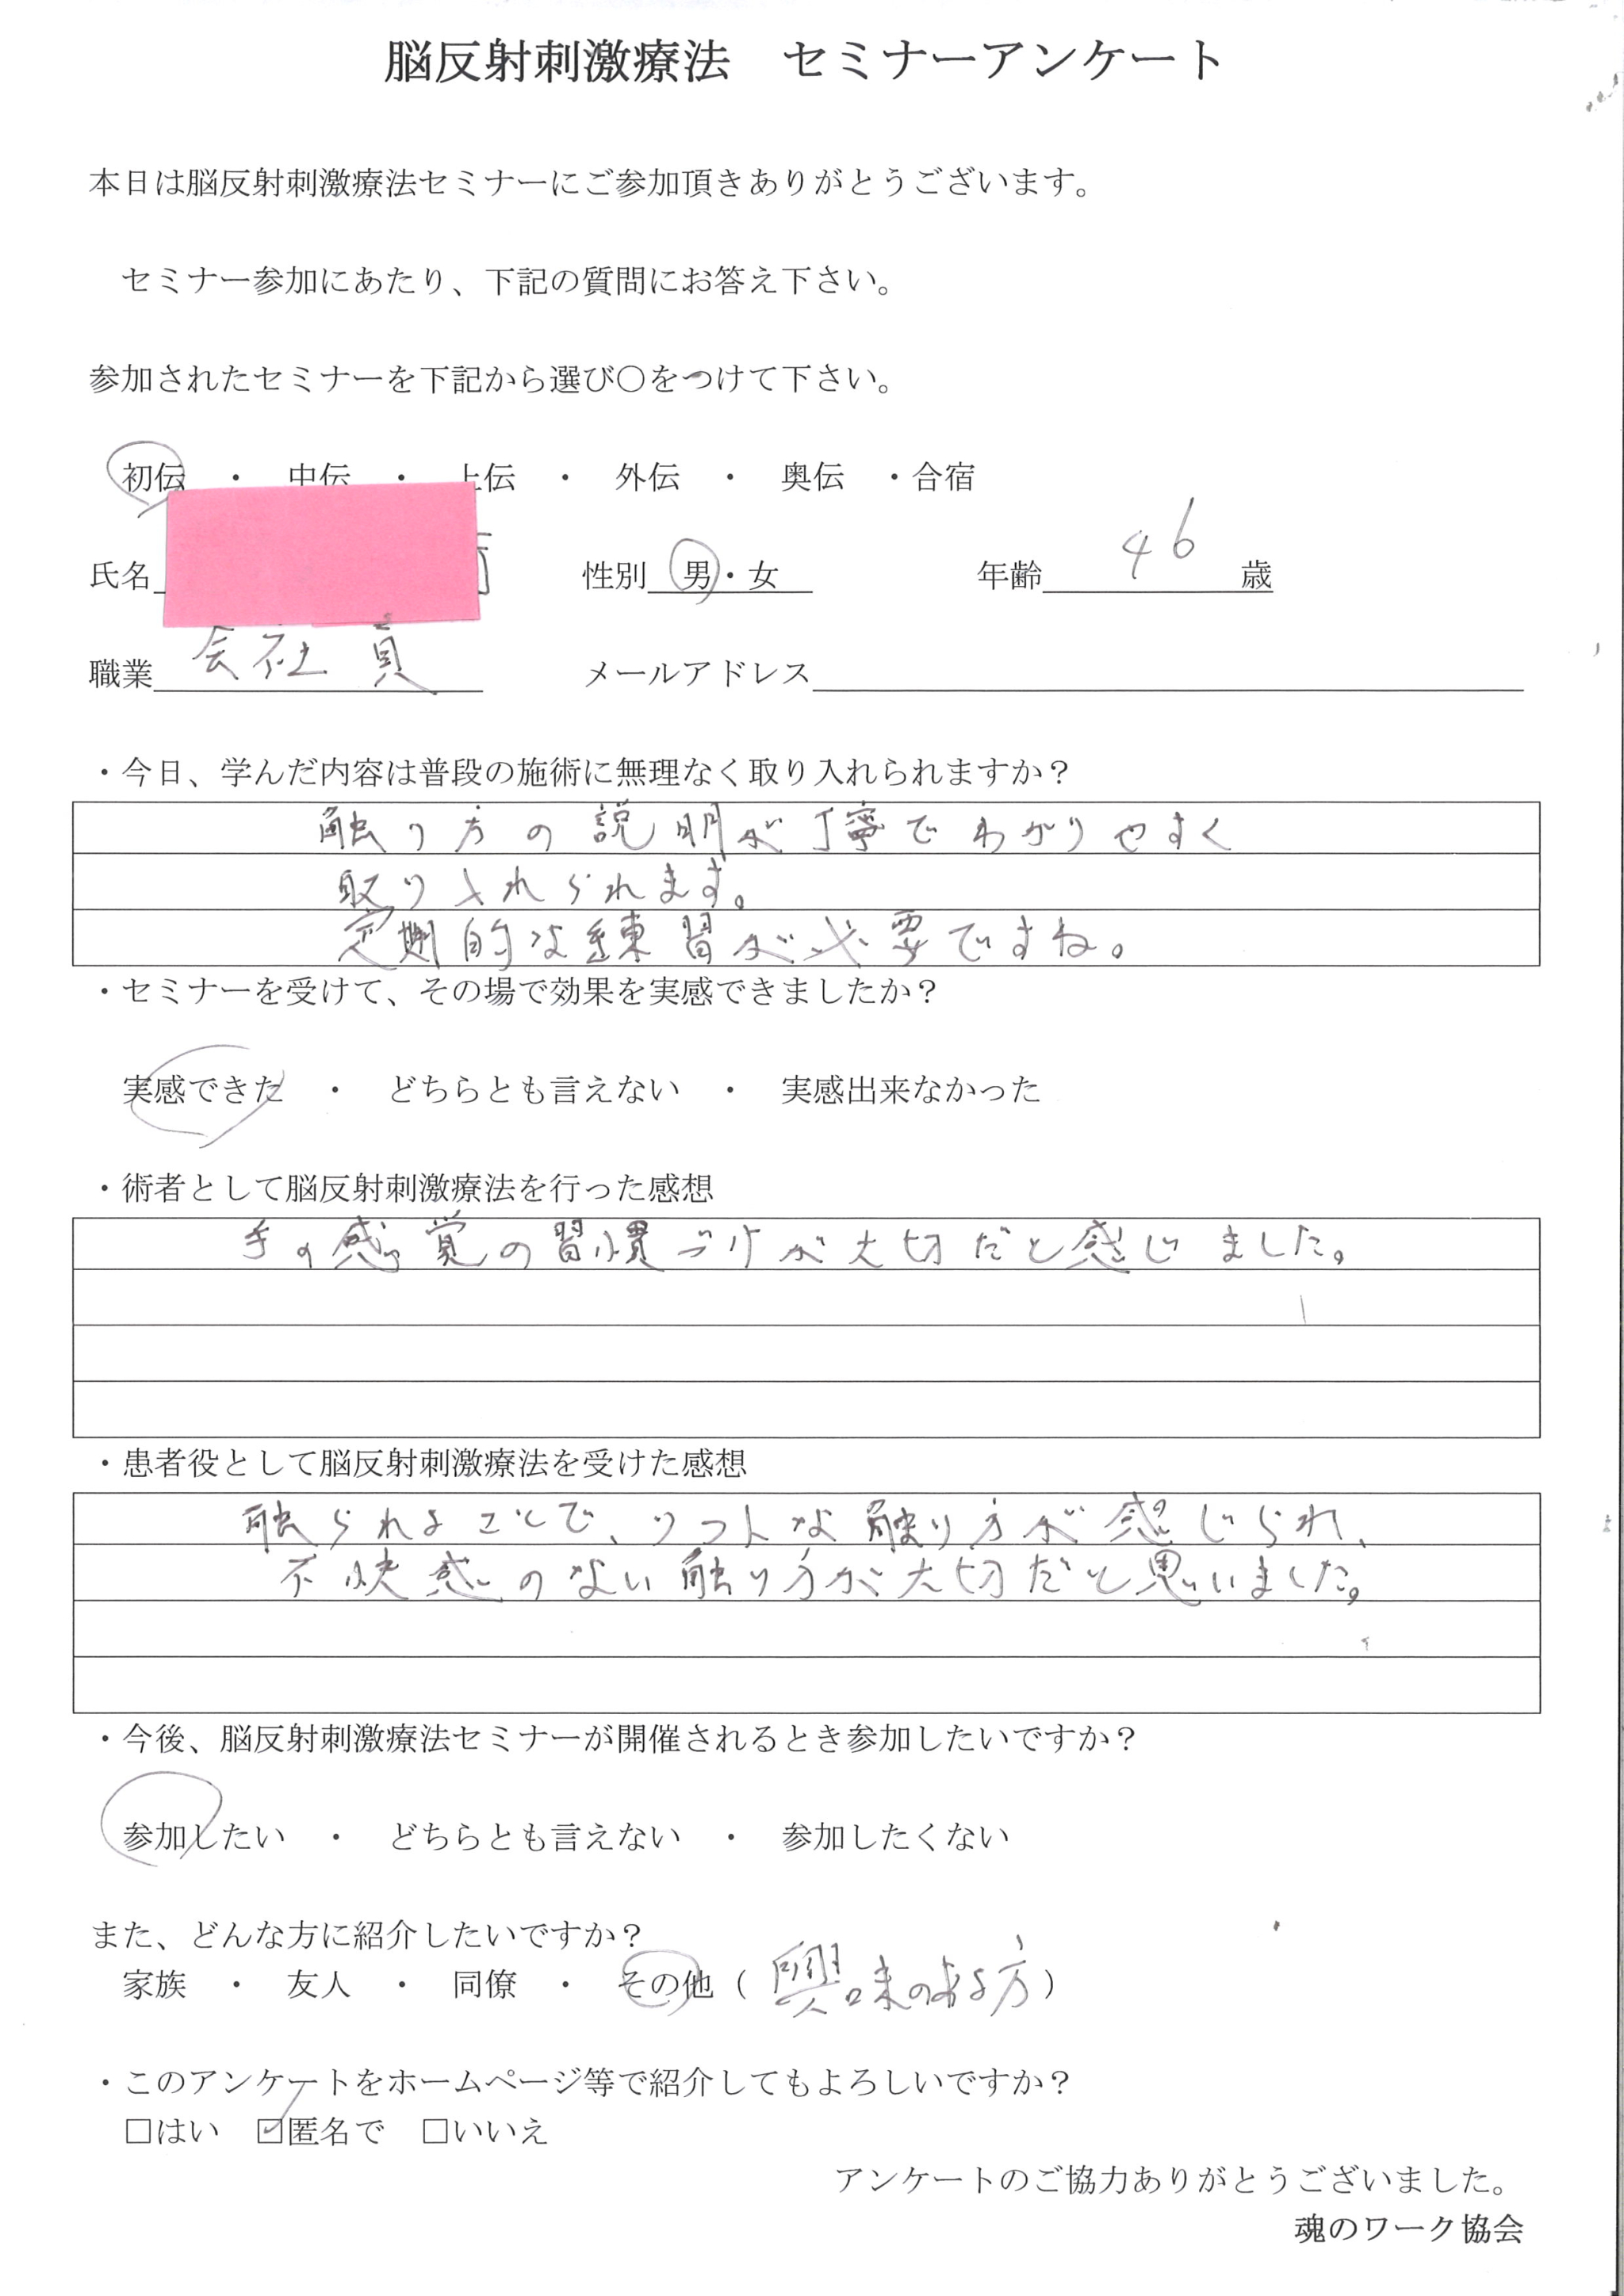 脳反射刺激療法　セミナーアンケート
本日は脳反射刺激療法セミナーにご参加頂きありがとうございます。
セミナー参加にあたり、下記の質問にお答え下さい。
参加されたセミナーを下記から選び〇をつけて下さい。
初伝　・　中伝　・　上伝　・　外伝　・　奥伝　・合宿
氏名　性別　男・女　年齢 46 歳
職業 会社員　メールアドレス
・今日、学んだ内容は普段の施術に無理なく取り入れられますか？
触り方の説明が丁寧でわかりやすく
取り入れられます。
定期的な練習が必要ですね。
・セミナーを受けて、その場で効果を実感できましたか？
実感できた　・　どちらとも言えない　・　実感出来なかった
・術者として脳反射刺激療法を行った感想
手の感覚の習慣づけが大切だと感じました。
・患者役として脳反射刺激療法を受けた感想
触られることで、ソフトな触り方が感じられ、
不快感のない触り方が大切だと思いました。
・今後、脳反射刺激療法セミナーが開催されるとき参加したいですか？
参加したい　・　どちらとも言えない　・　参加したくない
また、どんな方に紹介したいですか？
家族　・　友人　・　同僚　・　その他（興味のある方）
・このアンケートをホームページ等で紹介してもよろしいですか？
□はい　☑匿名で　□いいえ
アンケートのご協力ありがとうございました。
魂のワーク協会